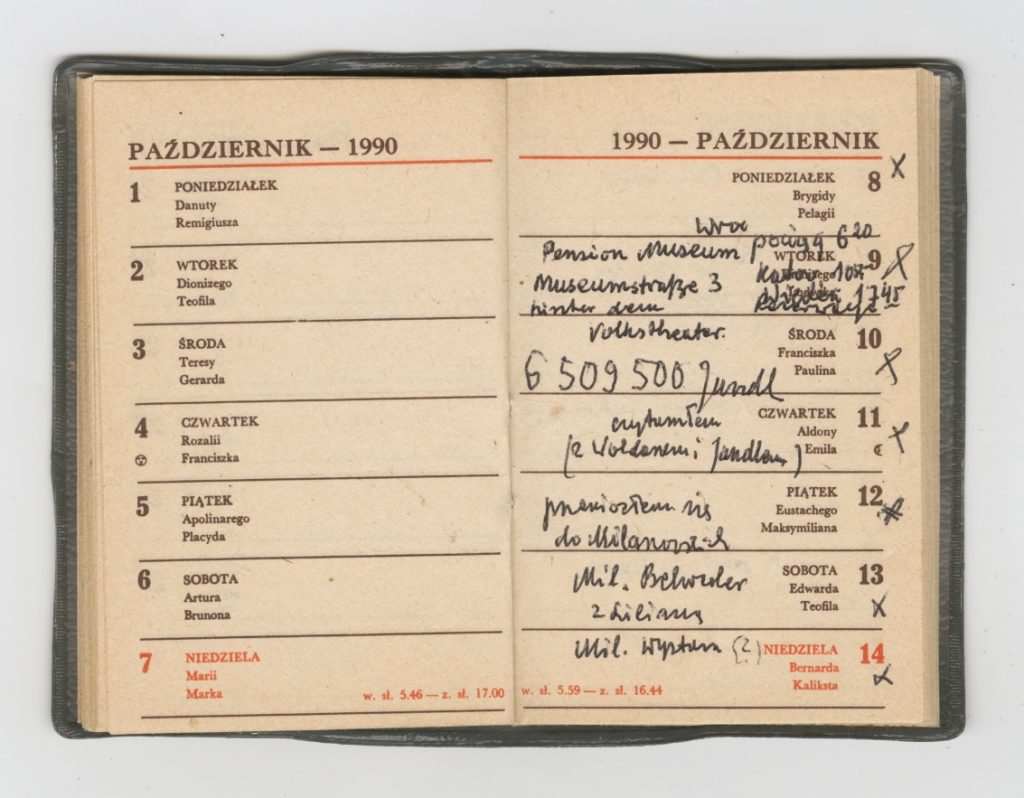 PAŹDZIERNIK — 1990
1 PONIEDZIAŁEK
Danuty
Remigiusza
2 WTOREK
Dionizego
Teofila
3 ŚRODA
Teresy
Gerarda
4 CZWARTEK
Rozalii
Franciszka
5 PIĄTEK
Apolinarego
Placyda
6 SOBOTA
Artura
Brunona
7 NIEDZIELA
Marii
Marka
w. sł. 5.46 — z. sł. 17.00
1990 — PAŹDZIERNIK
PONIEDZIAŁEK 8 x
Brygidy
Pelagii
Pension Museum pociąg 6 20
WTOREK 9 x
Museumstraße 3
hinter dem 17 45
Volkstheater.
ŚRODA 10 x
Franciszka
Paulina
6 509 500 Jandl
CZWARTEK 11 x
czytałem
Aldony
(z Woldanem i Jandlem) Emila
PIĄTEK 12
Eustachego
przeniosłem się
Maksymiliana
do Milanowskich
SOBOTA 13 x
Mil. Belweder
Edwarda
z Lilianą
Teofila
Mil. Wystawa (2) NIEDZIELA 14 x
Bernarda
Kaliksta
w. sł. 5.59 — z. sł. 16.44